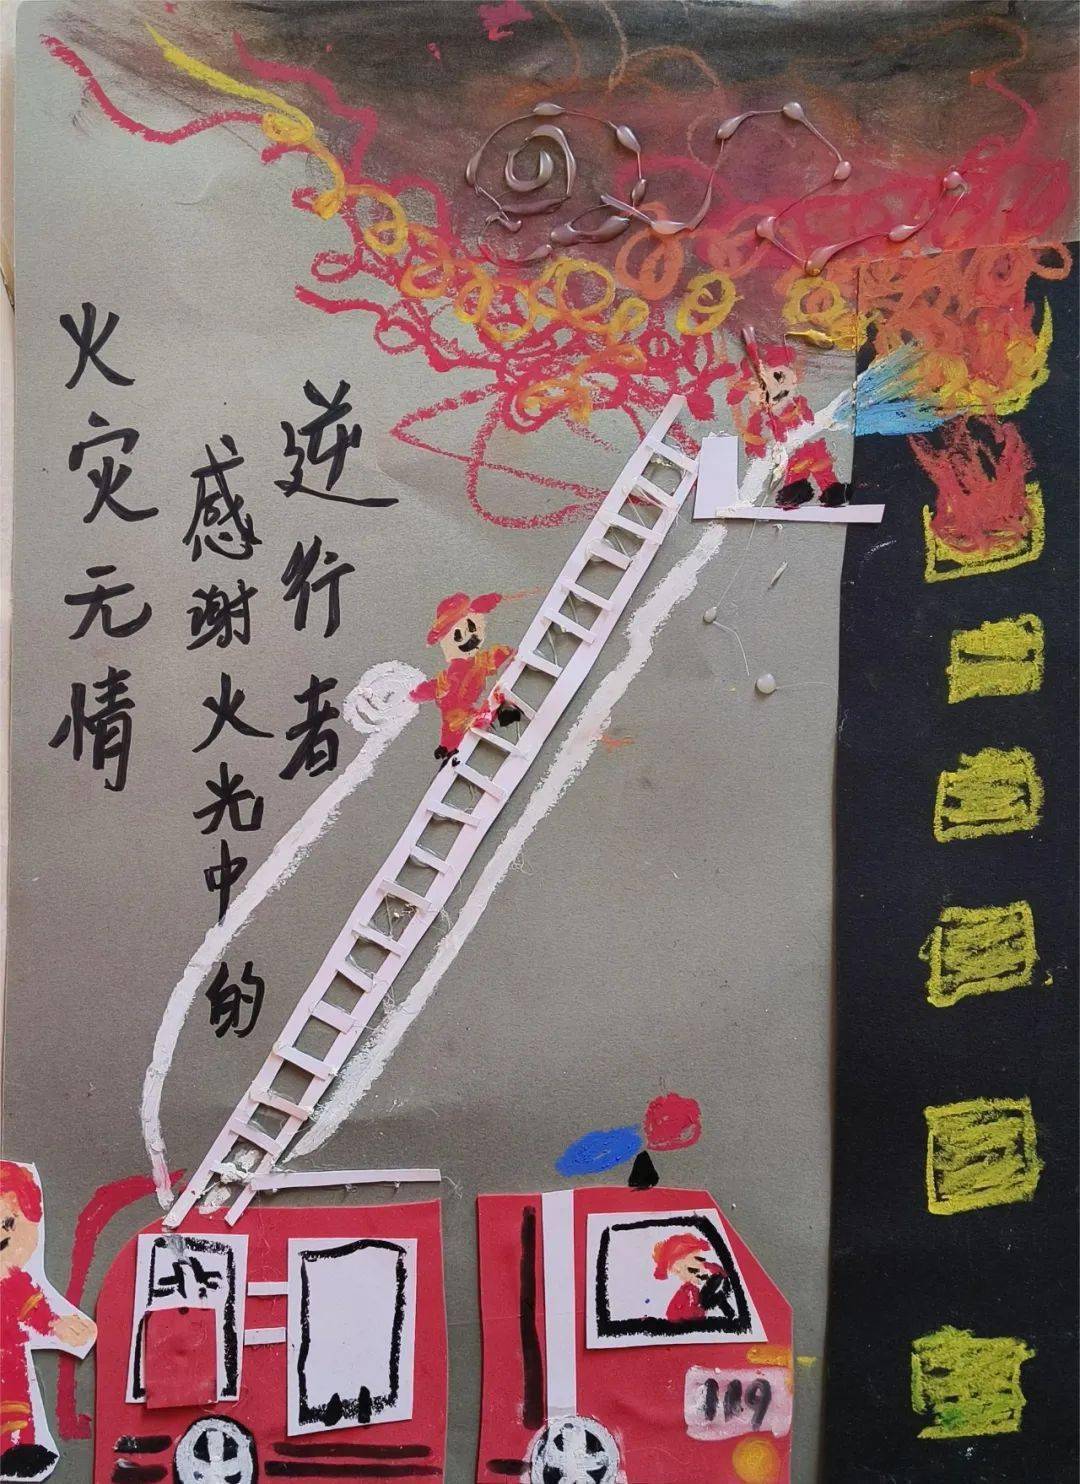 火灾无情
感谢火光中的
逆行者
119